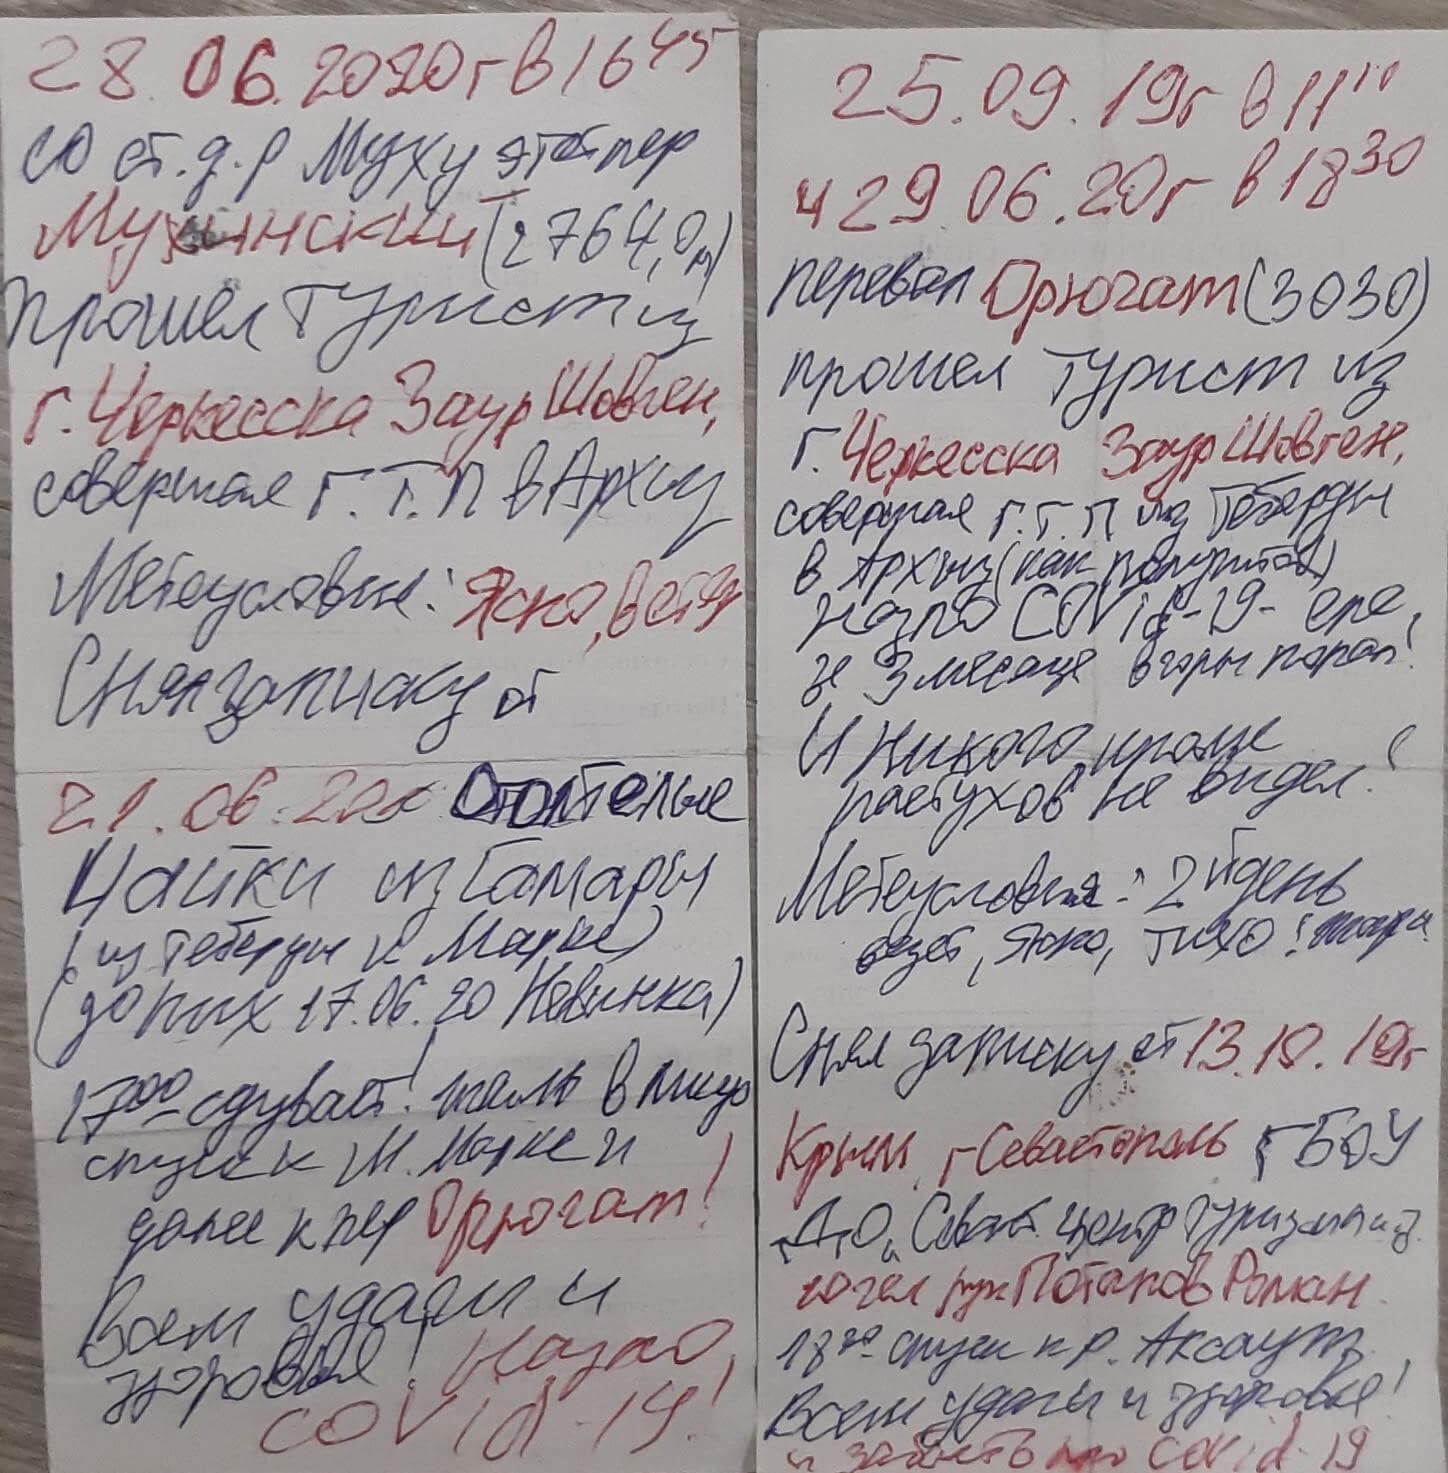 28.06.2020г в 16 45
со ст. д. р Муху этот пер
Мухинский (2764,0м)
прошел турист из
г. Черкесска Заур Шовген,
совершая Г.Т.П в Архыз
Метеусловия: Ясно, ветер
Снял записку от
21.06.20г
из Самары
(из Теберды к Марке)
(до них 17.06.20 Невинка)
17 00 - сдувает! в лицо
спуск к М. Марке и
далее к пер Орюгат!
Всем удачи и
здоровья! Назло
COVid-19!
25.09.19г в 11 10
и 29.06.20г в 18 30
перевал Орюгат (3030)
прошел турист из
г. Черкесска Заур Шовген,
совершая Г.Т.П из Теберды
в Архыз (как получится)
назло COVid-19- еле,
за 3 месяца в горы попал!
И никого, кроме
пастухов не видел!
Метеусловия: 2й день
везет, ясно, тихо!
Снял записку от 13.10.19г
Крым, г Севастополь ГБОУ
Д.О. Севаст. центр туризма
рук Потапов Роман.
18 40 - спуск к р. Аксаут.
Всем удачи и здоровья!
и забыть про covid-19